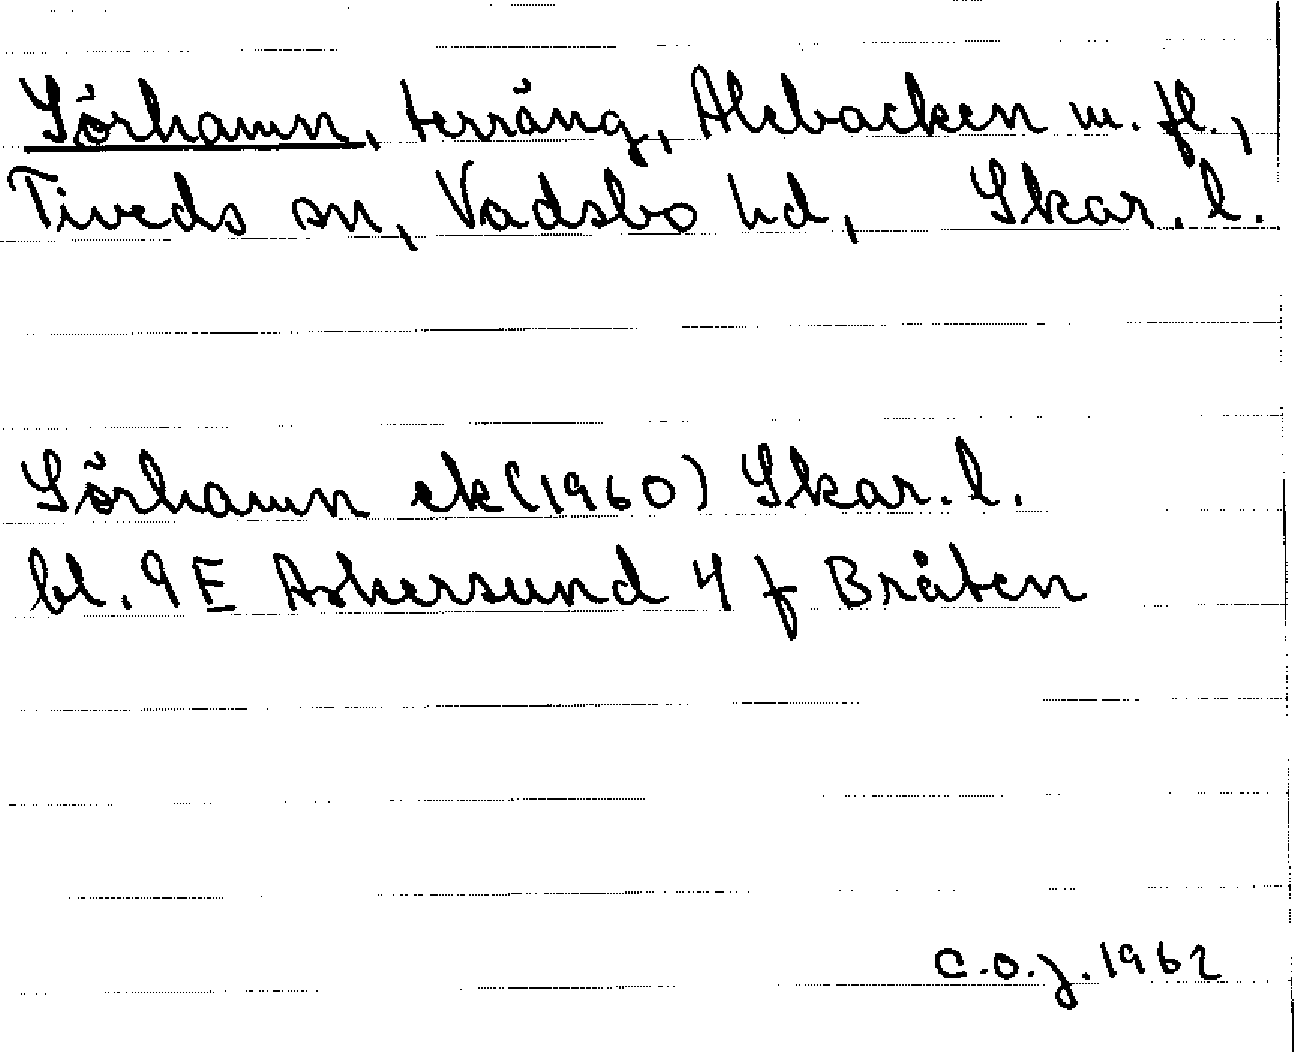 Sörhamn, terräng, Alebacken m. fl.,
Tiveds sn, Vadsbo hd, Skar. l.
Sörhamn ek (1960) Skar. l.
bl. 9 E Askersund 4 f Bråten
C.O.J. 1962